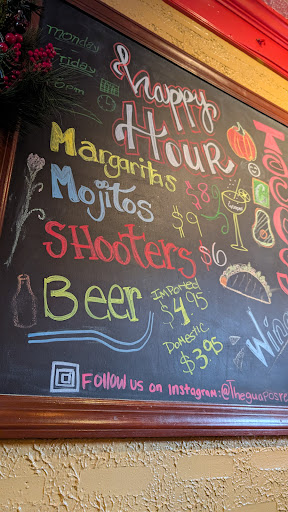 Monday
Friday
pm
Happy
Hour
Margaritas $8
Mojitos $9
SHOOTERS $6
Beer
Imported
$4.95
Domestic
$3.95
Follow us on Instagram:@Theguaposre